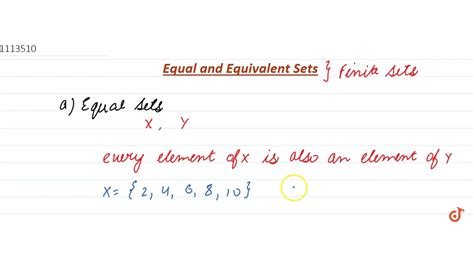 1113510
Equal and Equivalent Sets } Finite sets
a) Equal sets
X, Y
every element of X is also an element of Y
X = {2, 4, 6, 8, 10}